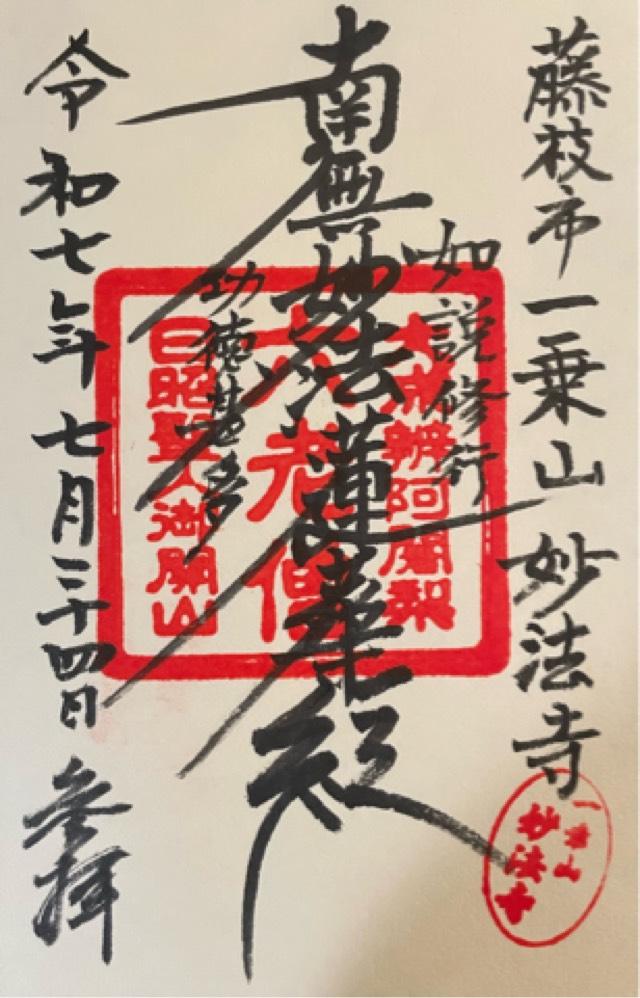 藤枝市一乗山 妙法寺
如説修行
南無妙法蓮華経
功徳甚多
令和七年七月二十四日 参拝
大成辨阿闍梨
六老僧
日昭聖人御開山
一乗山
妙法寺